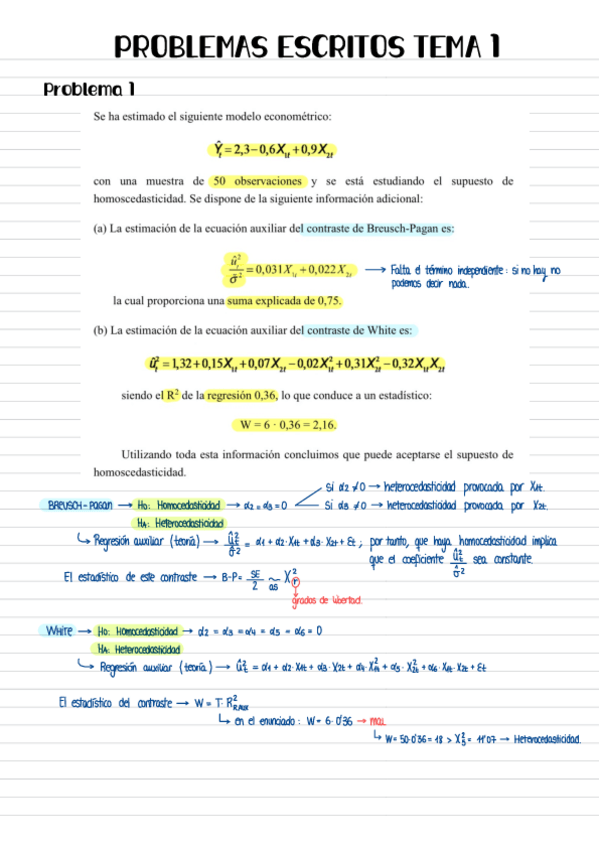 PROBLEMAS ESCRITOS TEMA 1
Problema 1
Se ha estimado el siguiente modelo econométrico:
Ŷt = 2,3 − 0,6X1t + 0,9X2t
con una muestra de 50 observaciones y se está estudiando el supuesto de
homoscedasticidad. Se dispone de la siguiente información adicional:
(a) La estimación de la ecuación auxiliar del contraste de Breusch-Pagan es:
ût² / σ̂² = 0,031X1t + 0,022X2t → Falta el término independiente: si no hay no
podemos decir nada.
la cual proporciona una suma explicada de 0,75.
(b) La estimación de la ecuación auxiliar del contraste de White es:
ût² = 1,32 + 0,15X1t + 0,07X2t − 0,02X1t² + 0,31X2t² − 0,32X1tX2t
siendo el R² de la regresión 0,36, lo que conduce a un estadístico:
W = 6 · 0,36 = 2,16.
Utilizando toda esta información concluimos que puede aceptarse el supuesto de
homoscedasticidad.
Si α2 ≠ 0 → heterocedasticidad provocada por X1t.
BREUSCH-PAGAN → H0: Homocedasticidad → α2 = α3 = 0
Si α3 ≠ 0 → heterocedasticidad provocada por X2t.
HA: Heterocedasticidad
↳ Regresión auxiliar (teoría) → ût² / σ̂² = α1 + α2·X1t + α3·X2t + εt ; por tanto, que haya homocedasticidad implica
que el coeficiente ût² / σ̂² sea constante.
El estadístico de este contraste → B-P = SE / 2 ~as χ²r
grados de libertad.
White → H0: Homocedasticidad → α2 = α3 = α4 = α5 = α6 = 0
HA: Heterocedasticidad
↳ Regresión auxiliar (teoría) → ût² = α1 + α2·X1t + α3·X2t + α4·X1t² + α5·X2t² + α6·X1t·X2t + εt
El estadístico del contraste → W = T·R²R.AUX
↳ en el enunciado: W = 6·0'36 → mal
↳ W = 50·0'36 = 18 > χ²5 = 11'07 → Heterocedasticidad.